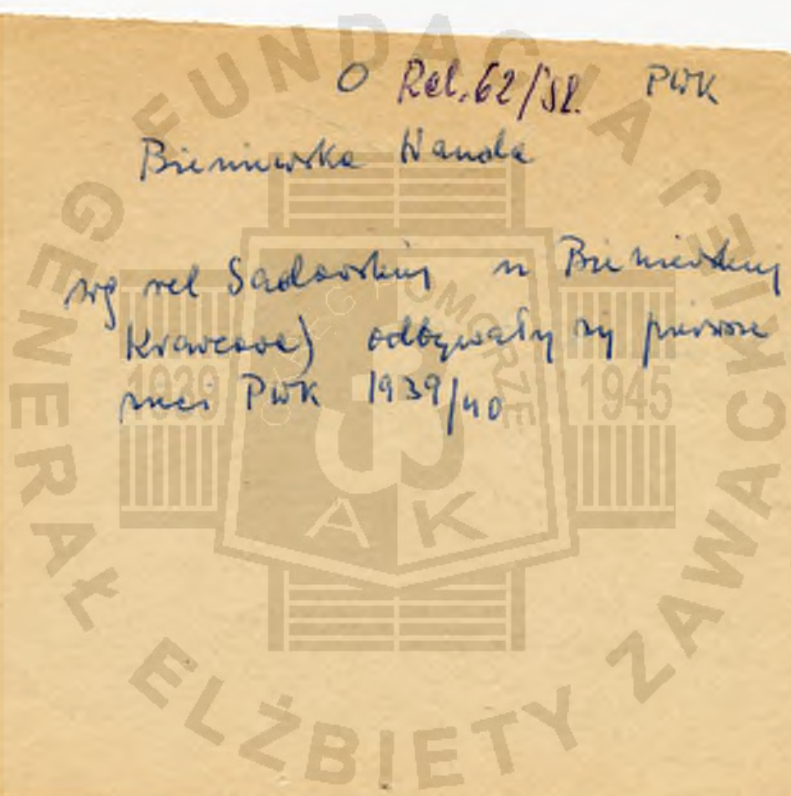 O Rel. 62/SR. PWK
Bieniewska Wanda
wg rel Sadowskiej u Bieniewskiej
Krawcowa) odbywały się pierwsze
PWK 1939/40
FUNDACJA GENERAŁ ELŻBIETY ZAWACKIEJ
POMORZE
1939 1945
AK